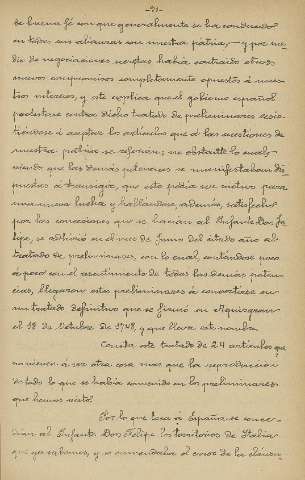 -51-
de buena fé con que generalmente se ha conducido
en todas sus alianzas con nuestra patria, - y por me-
dio de negociaciones secretas había contraído otros
nuevos compromisos completamente opuestos á nues-
tros intereses, y esto explica que el gobierno español
protestara contra dicho tratado de preliminares resis-
tiéndose á aceptar los artículos que á las cuestiones de
nuestra patria se referían; no obstante lo cual,
viendo que las demás potencias se manifestaban dis
puestas á transigir, que esta podía ser motivo para
una nueva lucha y hallándose, además, satisfecho
por las concesiones que se hacían al Infante Don Fe
lipe, se adhirió en el mes de Junio del citado año al
tratado de preliminares, con lo cual, contándose poco
á poco con el asentimiento de todas las demás poten-
cias, llegaron estos preliminares á convertirse en
un tratado definitivo que se firmó en Aquisgrán
el 18 de Octubre de 1748, y que lleva este nombre.
Consta este tratado de 24 artículos que
no vienen á ser otra cosa mas que la reproducción
de todo lo que se había convenido en los preliminares
que hemos visto.
Por lo que toca á España se conce-
dían al Infante Don Felipe los territorios de Italia
que ya sabemos, y se enmendaba el error de la cláusu